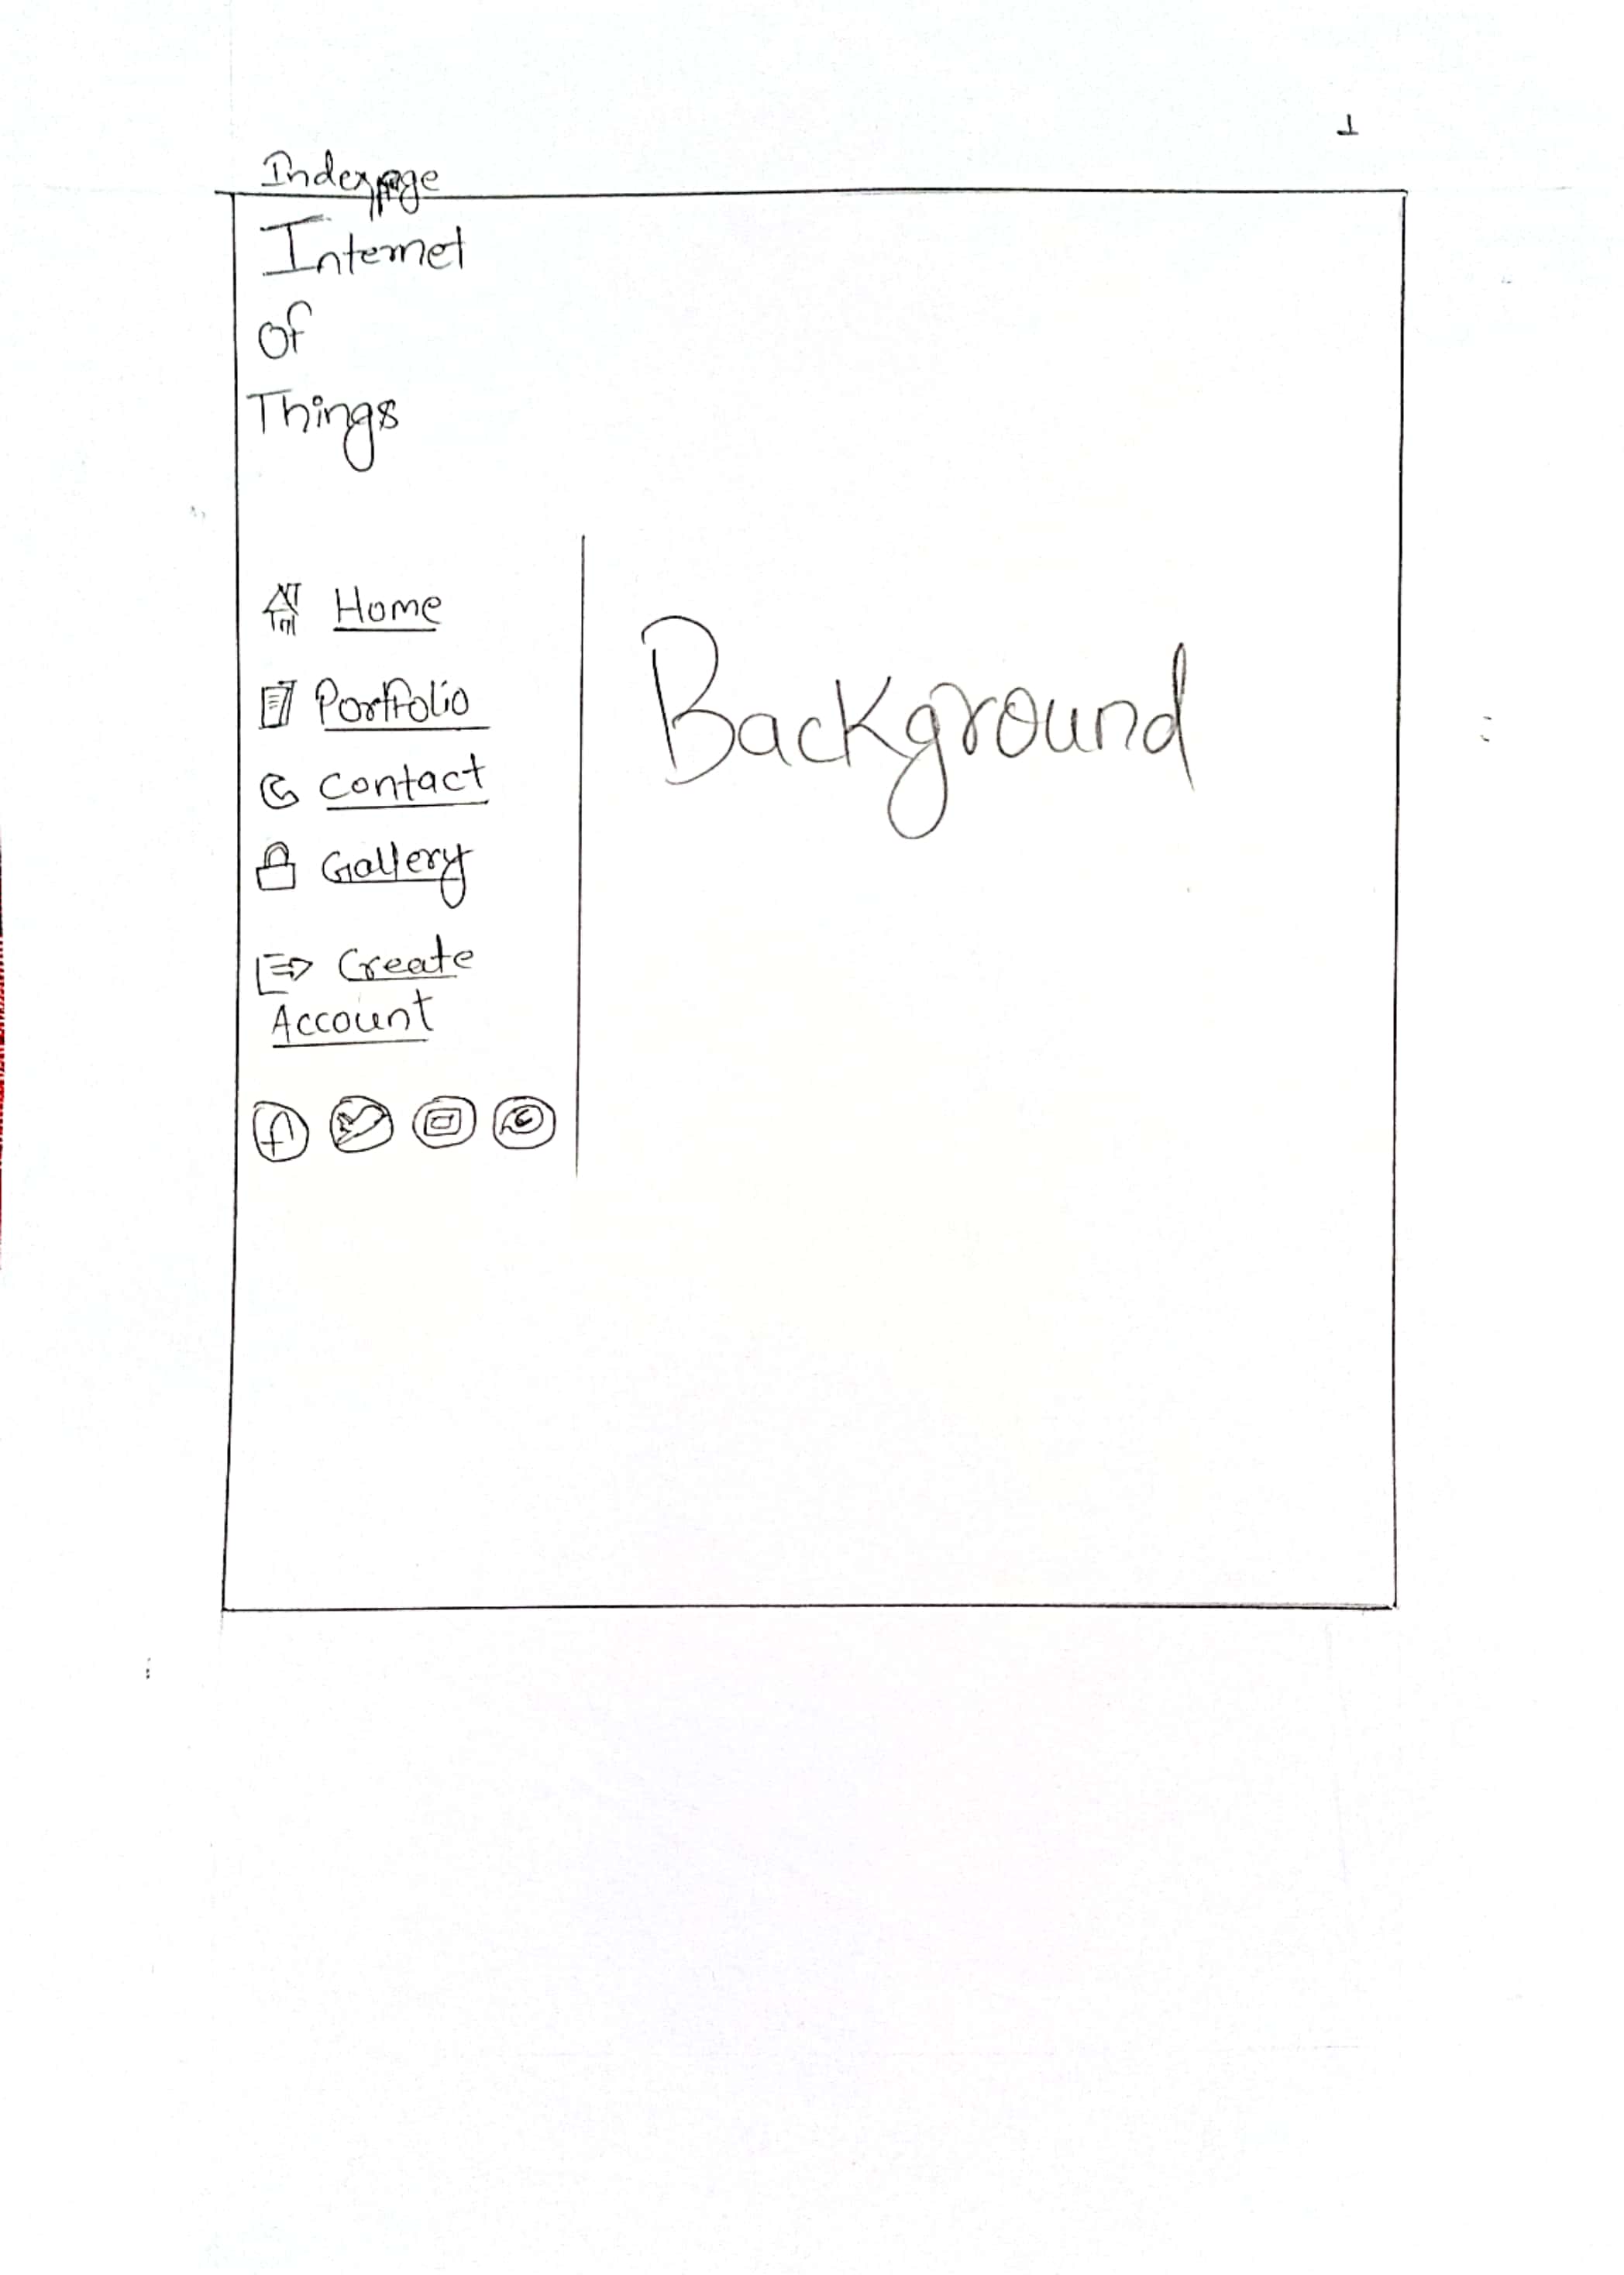 1
Index page
Internet
of
Things
Home
Portfolio
Contact
Gallery
Create
Account
Background